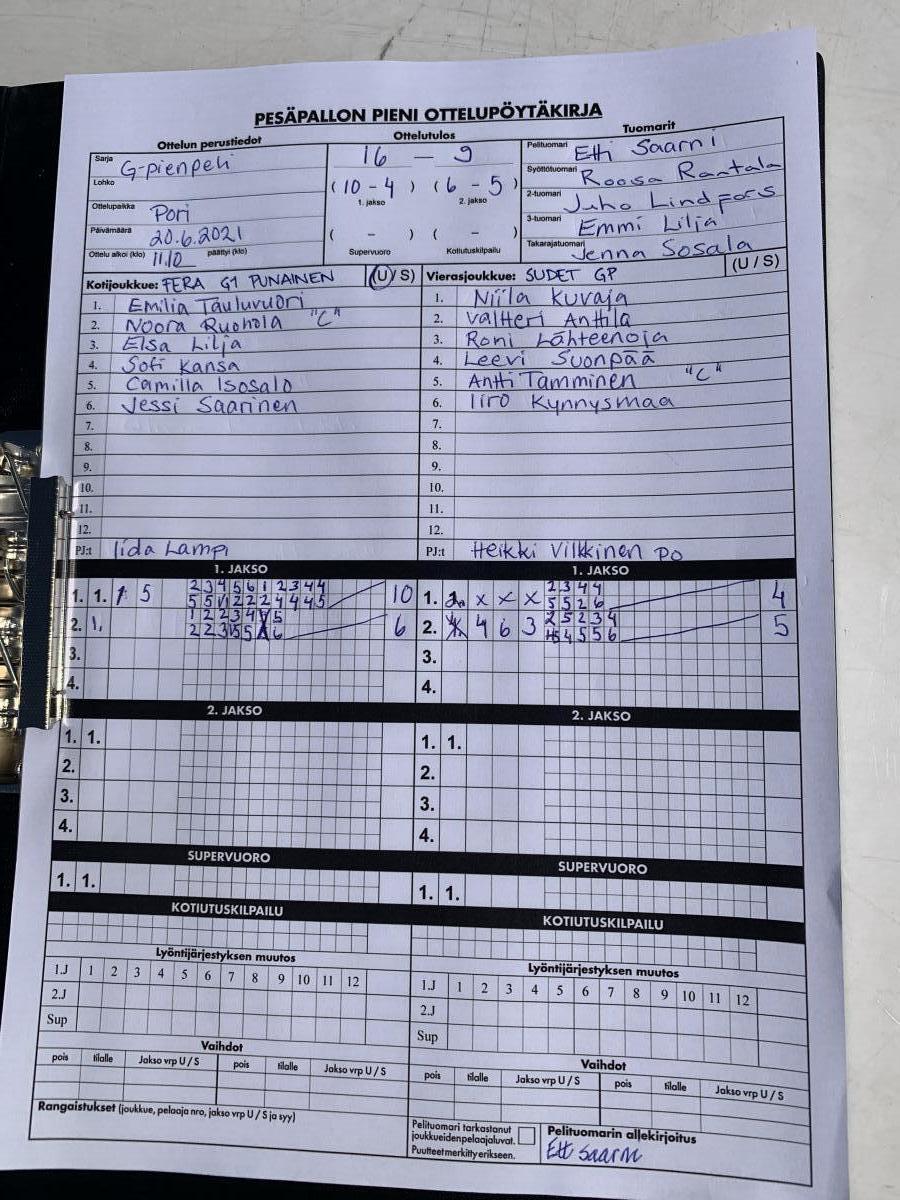 PESÄPALLON PIENI OTTELUPÖYTÄKIRJA
Ottelun perustiedot
Ottelutulos
Tuomarit
Sarja G-pienpeli
Lohko
Ottelupaikka Pori
Päivämäärä 20.6.2021
Ottelu alkoi (klo) 11.10 päättyi (klo)
16 – 9
(10 – 4) (6 – 5)
1. jakso 2. jakso
( – ) ( – )
Supervuoro Kotiutuskilpailu
Pelituomari Etti Saarni
Syöttötuomari Roosa Rantala
2-tuomari Juho Lindfors
3-tuomari Emmi Lilja
Takarajatuomari Jenna Sosala
Kotijoukkue: FERA G1 PUNAINEN (U/S)
1. Emilia Tauluvuori
2. Noora Ruohola "C"
3. Elsa Lilja
4. Sofi Kansa
5. Camilla Isosalo
6. Jessi Saarinen
7.
8.
9.
10.
11.
12.
PJ:t Iida Lampi
Vierasjoukkue: SUDET GP (U / S)
1. Niila Kuvaja
2. Valtteri Anttila
3. Roni Lähteenoja
4. Leevi Suonpää
5. Antti Tamminen "C"
6. Iiro Kynnysmaa
7.
8.
9.
10.
11.
12.
PJ:t Heikki Vilkkinen PO
1. JAKSO
1. 1. 5 10
2 3 4 5 6 1 2 3 4 4
2. 1. 6
3.
4.
1. JAKSO
1. x x x 4
2 3 4 4
5 5 2 6
2. 4 6 3 5
2 5 2 3 4
4 5 5 6
3.
4.
2. JAKSO
1. 1.
2.
3.
4.
2. JAKSO
1. 1.
2.
3.
4.
SUPERVUORO
1. 1.
SUPERVUORO
1. 1.
KOTIUTUSKILPAILU
KOTIUTUSKILPAILU
Lyöntijärjestyksen muutos
1.J 1 2 3 4 5 6 7 8 9 10 11 12
2.J
Sup
Lyöntijärjestyksen muutos
1.J 1 2 3 4 5 6 7 8 9 10 11 12
2.J
Sup
Vaihdot
pois tilalle Jakso vrp U / S pois tilalle Jakso vrp U / S
Vaihdot
pois tilalle Jakso vrp U / S pois tilalle Jakso vrp U / S
Rangaistukset (joukkue, pelaaja nro, jakso vrp U / S ja syy)
Pelituomari tarkastanut
joukkueidenpelaajaluvat.
Puutteet merkitty erikseen.
Pelituomarin allekirjoitus
Etti Saarni